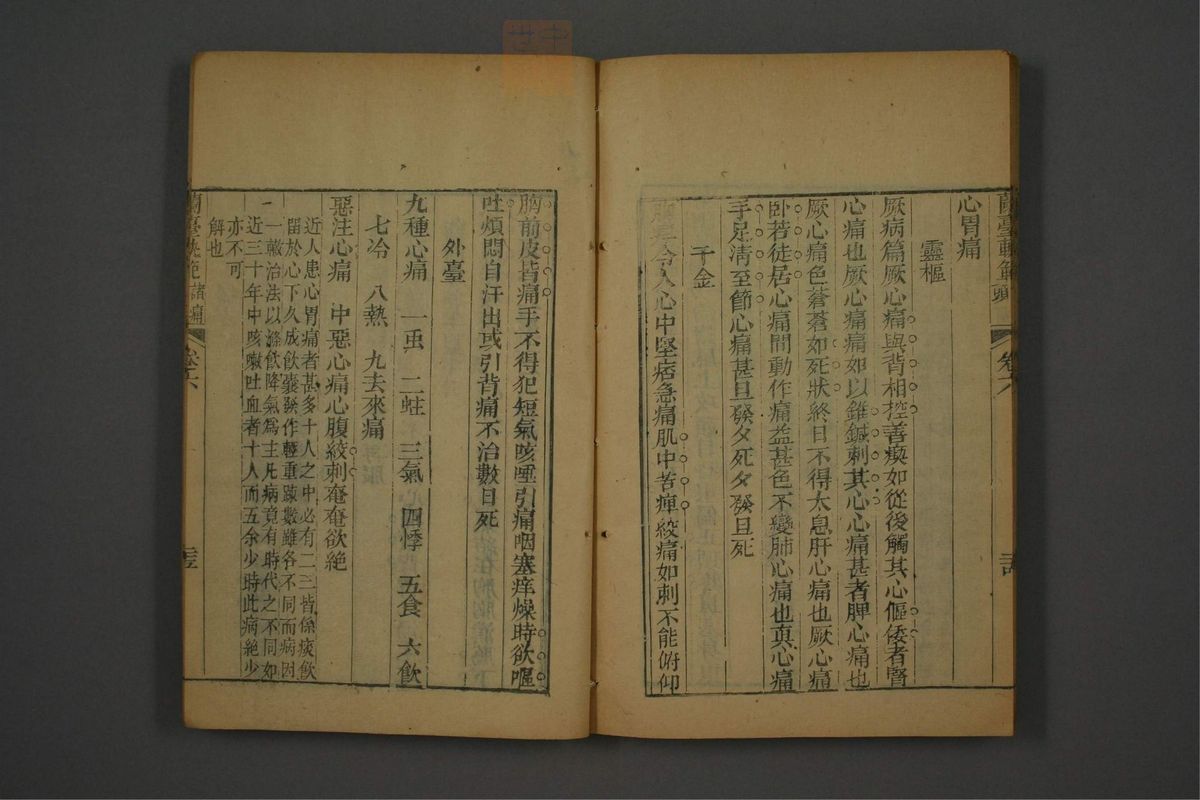 心胃痛
靈樞
厥病篇厥心痛與背相控善瘈如從後觸其心傴僂者腎
心痛也厥心痛痛如以錐鍼刺其心心痛甚者脾心痛也
厥心痛色蒼蒼如死狀終日不得太息肝心痛也厥心痛
卧若徒居心痛間動作痛益甚色不變肺心痛也真心痛
手足清至節心痛甚旦發夕死夕發旦死
千金
令人心中堅痞急痛肌中苦痺絞痛如刺不能俯仰
胸前皮皆痛手不得犯短氣咳唾引痛咽塞痒燥時欲嘔
吐煩悶自汗出或引背痛不治數日死
外臺
九種心痛 一虫 二蛀 三氣 四悸 五食 六飲
七冷 八熱 九去來痛
惡注心痛 中惡心痛心腹絞刺奄奄欲絶
近人患心胃痛者甚多十人之中必有二三皆係痰飲
留於心下久成飲囊發作輕重疎數雖各不同而病因
一轍治法以滌飲降氣為主凡病竟有時代之不同如
近三十年中咳嗽吐血者十人而五余少時此病絶少
亦不可
解也